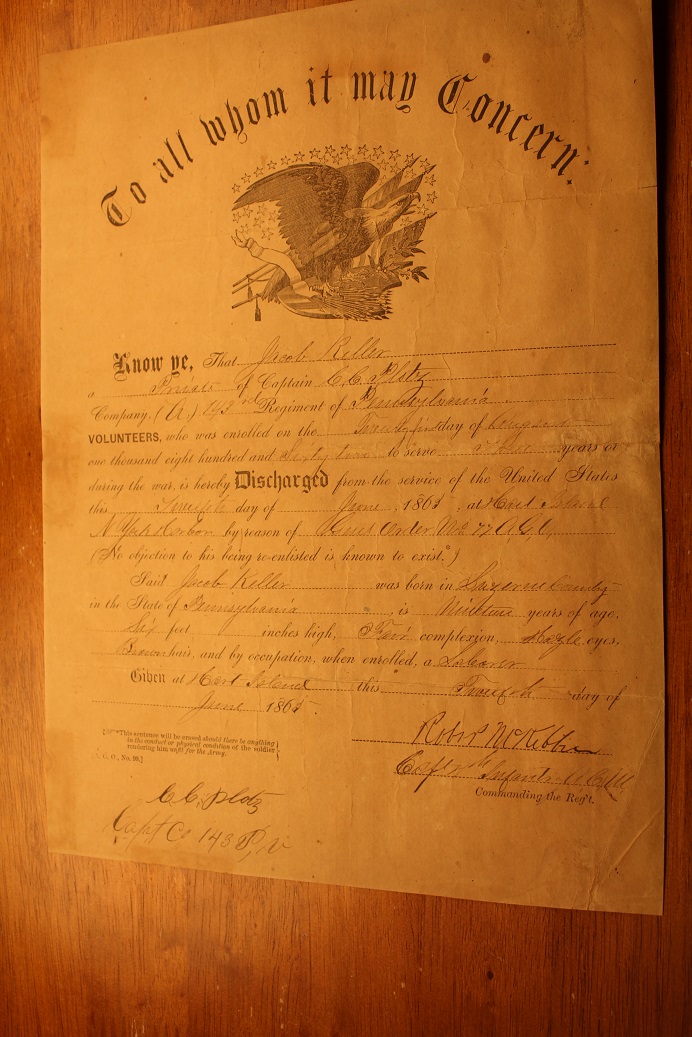 To all whom it may Concern:
Know ye, That Jacob Keller
a Private of Captain C. C. Plotz
Company, (A.) 143rd Regiment of Pennsylvania
VOLUNTEERS, who was enrolled on the day of August
one thousand eight hundred and Sixty two to serve years or
during the war, is hereby Discharged from the service of the United States
this Twelfth day of June, 1865, at Hart Island
N York Harbor by reason of Order No 77 A.G.O.
(No objection to his being re-enlisted is known to exist.*)
Said Jacob Keller was born in Luzerne County
in the State of Pennsylvania, is Nineteen years of age,
Six feet inches high, Fair complexion, Hazle eyes,
Brown hair, and by occupation, when enrolled, a Laborer
Given at Hart Island this Twelfth day of
June 1865.
*This sentence will be erased should there be anything
in the conduct or physical condition of the soldier
rendering him unfit for the Army.
[A. G. O., No. 99.]
Robt McKibbin
Capt Infantry U.S.A.
Commanding the Reg't.
C. C. Plotz
Capt Co 143 P. V